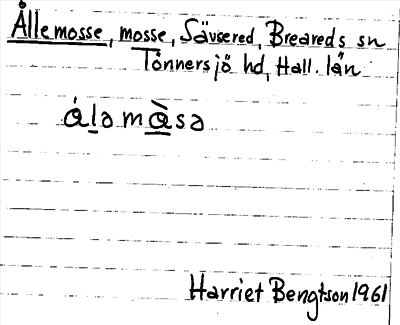 Ållemosse, mosse, Sävsered, Breareds sn
Tönnersjö hd, Hall. län
álǝmàsǝ
Harriet Bengtson 1961